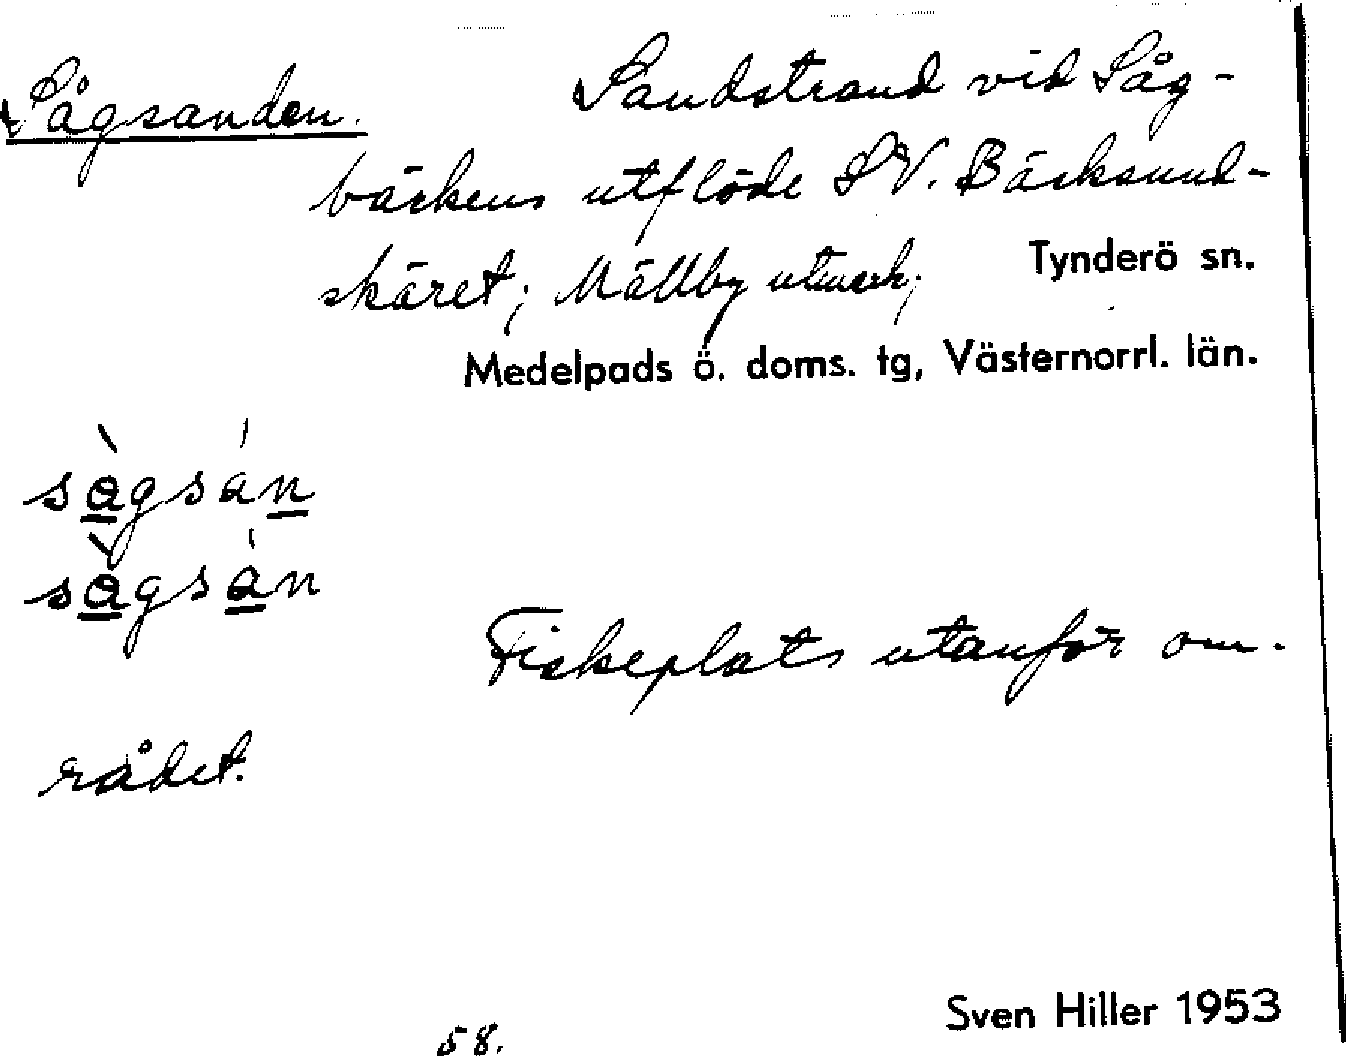 Sågsanden. Sandstrand vid Såg-
bäckens utflöde SV. Bäcksund-
skäret; Mällby utmark; Tynderö sn.
Medelpads ö. doms. tg, Västernorrl. län.
sågsan
sågsan
Fiskeplats utanför om-
rådet.
Sven Hiller 1953
58.